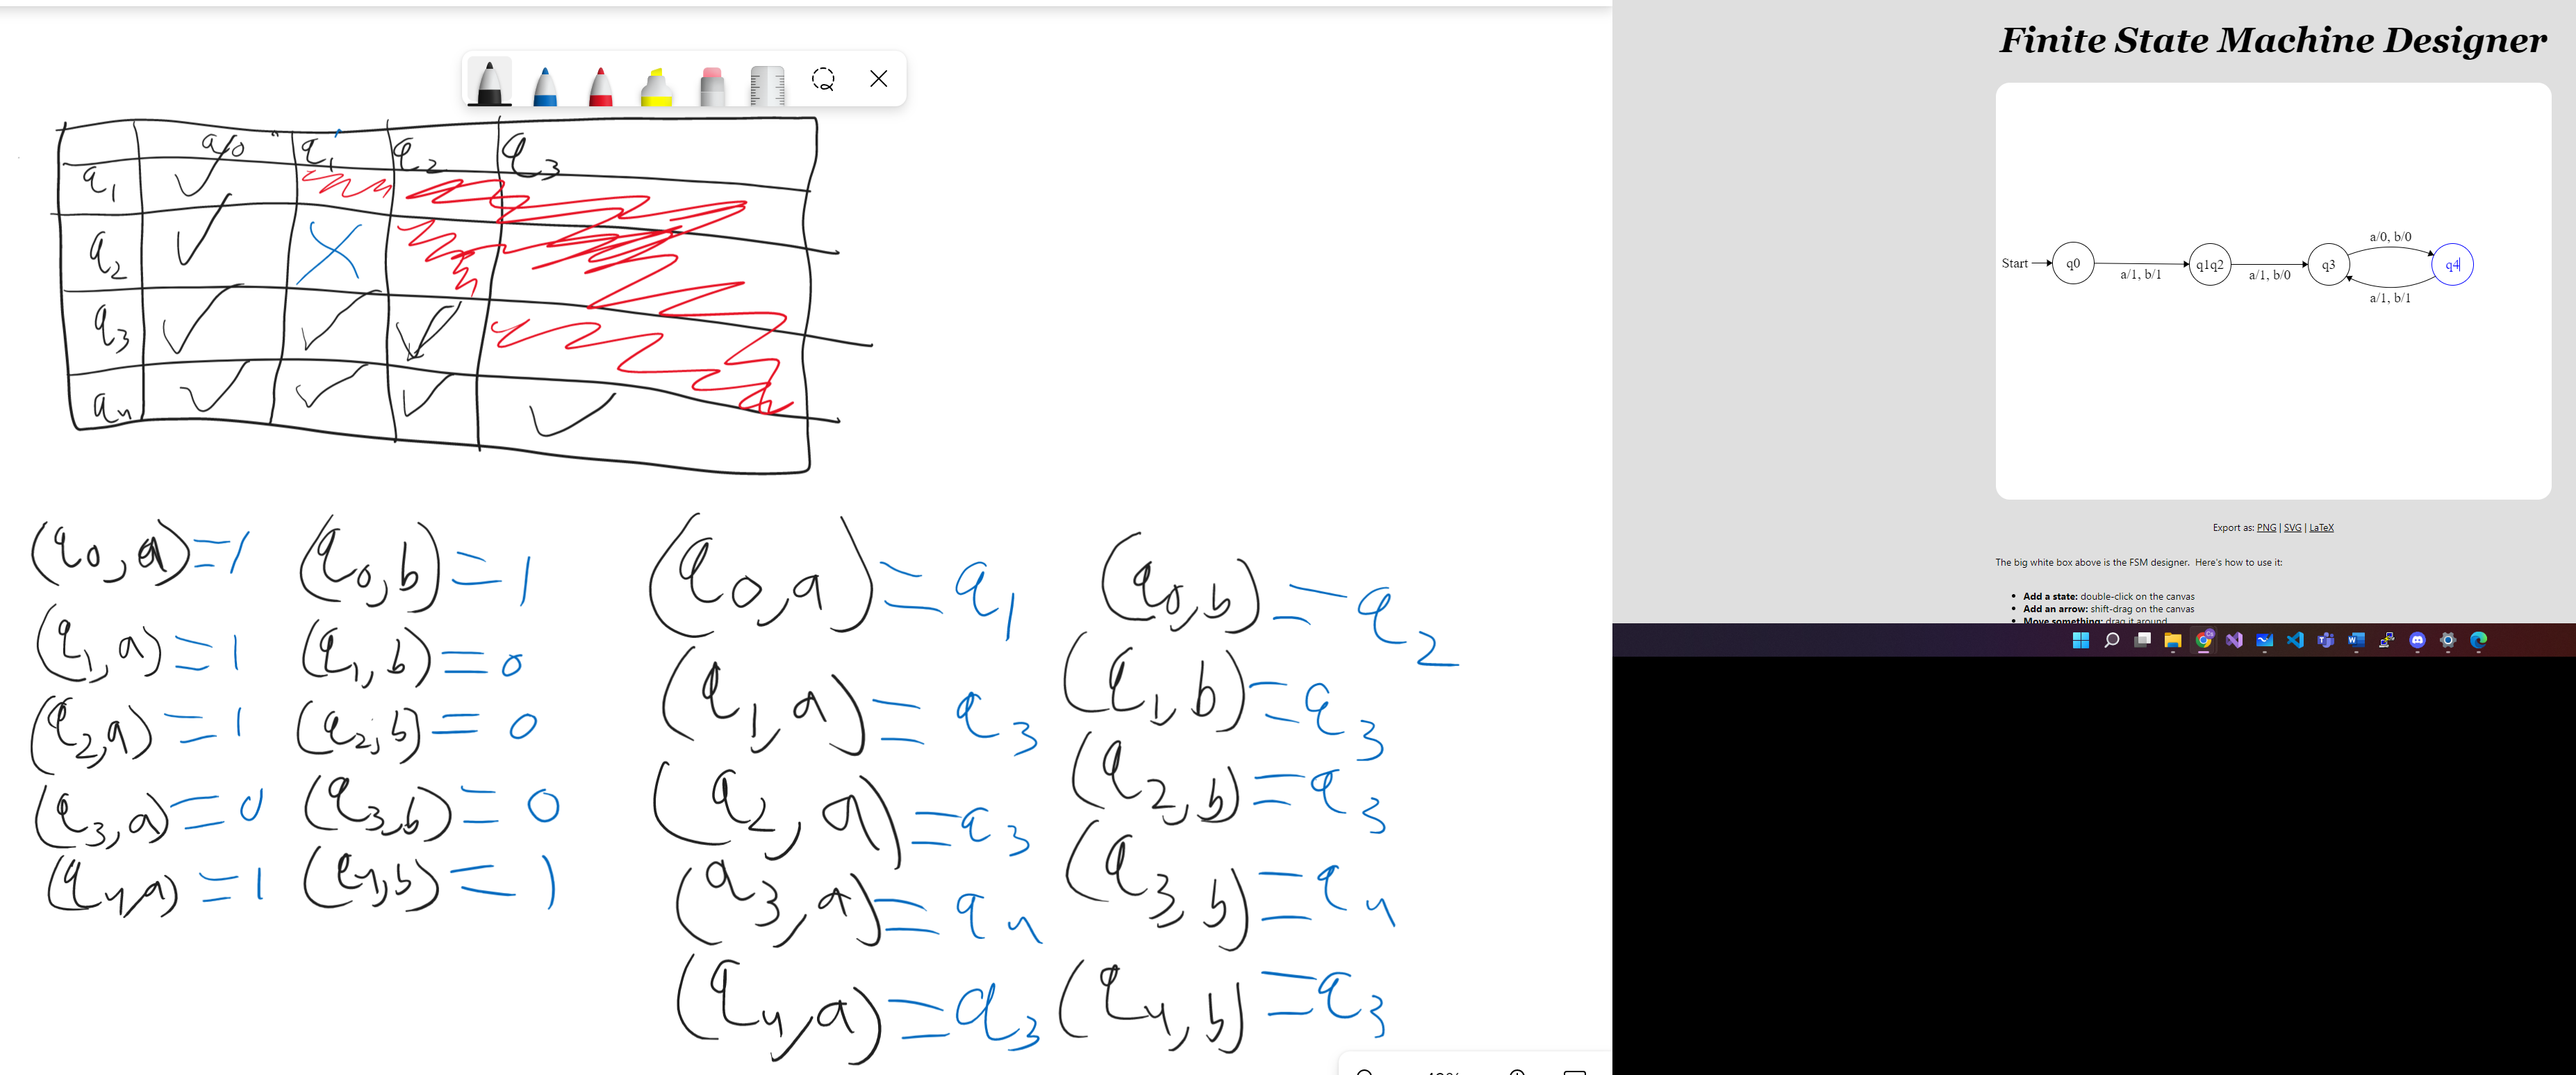 q0 q1 q2 q3
q1
q2
q3
q4
(q0,a)=1 (q0,b)=1
(q1,a)=1 (q1,b)=0
(q2,a)=1 (q2,b)=0
(q3,a)=0 (q3,b)=0
(q4,a)=1 (q4,b)=1
(q0,a)=q1 (q0,b)=q2
(q1,a)=q3 (q1,b)=q3
(q2,a)=q3 (q2,b)=q3
(q3,a)=q4 (q3,b)=q4
(q4,a)=q3 (q4,b)=q3
Finite State Machine Designer
Start q0 a/1, b/1 q1q2 a/1, b/0 q3 a/0, b/0 q4
a/1, b/1
Export as: PNG | SVG | LaTeX
The big white box above is the FSM designer. Here's how to use it:
• Add a state: double-click on the canvas
• Add an arrow: shift-drag on the canvas
• Move something: drag it around